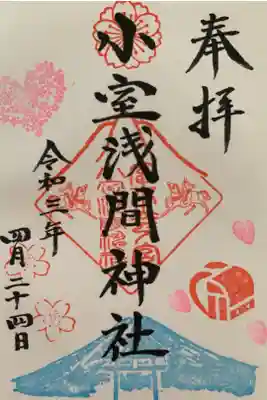 奉拝
小室浅間神社
令和三年
四月二十四日